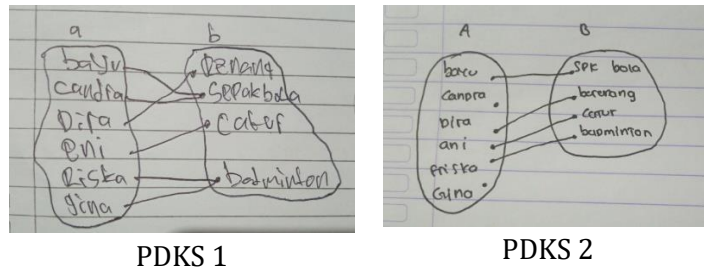 a b
bayu
candra
Dira
eni
Riska
gina
Renang
Sepakbola
Catur
badminton
PDKS 1
A B
bayu
Candra
Dira
ani
friska
Gino
SPK bola
berenang
Catur
badminton
PDKS 2